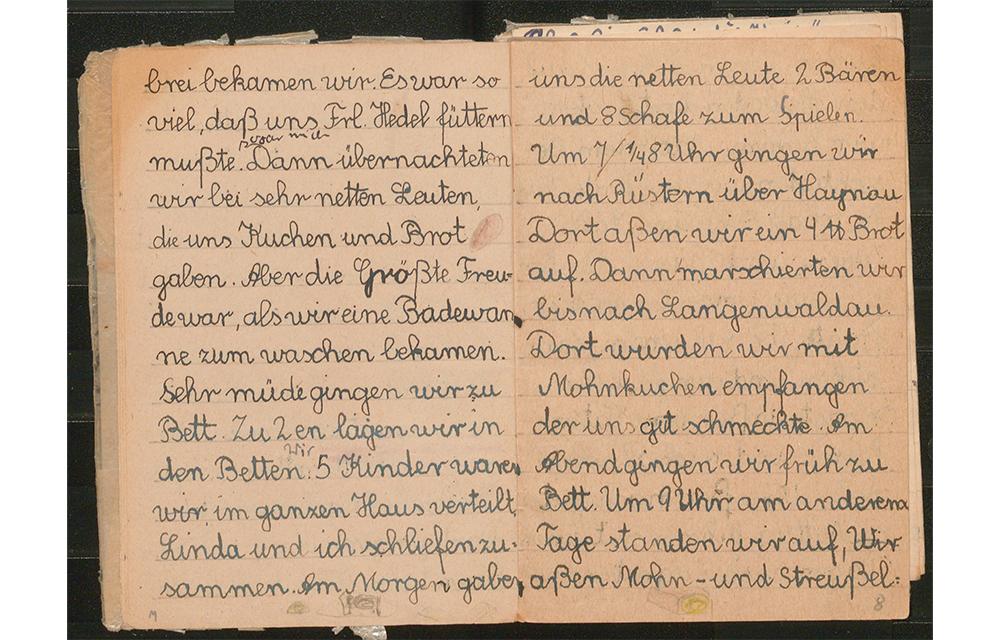 brei bekamen wir. Es war so
viel, daß uns Frl. Hedel füttern
mußte. Dann übernachteten
wir bei sehr netten Leuten,
die uns Kuchen und Brot
gaben. Aber die Größte Freu-
de war, als wir eine Badewan
ne zum waschen bekamen.
Sehr müde gingen wir zu
Bett. Zu 2 en lagen wir in
wir
den Betten. 5 Kinder waren
wir, im ganzen Haus verteilt,
Linda und ich schliefen zu-
sammen. Am Morgen gaben
uns die netten Leute 2 Bären
und 8 Schafe zum Spielen.
Um 7/¼8 Uhr gingen wir
nach Rüstern über Haynau
Dort aßen wir ein 4 ℔ Brot
auf. Dann marschierten wir
bis nach Langenwaldau.
Dort wurden wir mit
Mohnkuchen empfangen
der uns gut schmeckte. Am
Abend gingen wir früh zu
Bett. Um 9 Uhr am anderem
Tage standen wir auf, Wir
aßen Mohn - und Streußel:
8